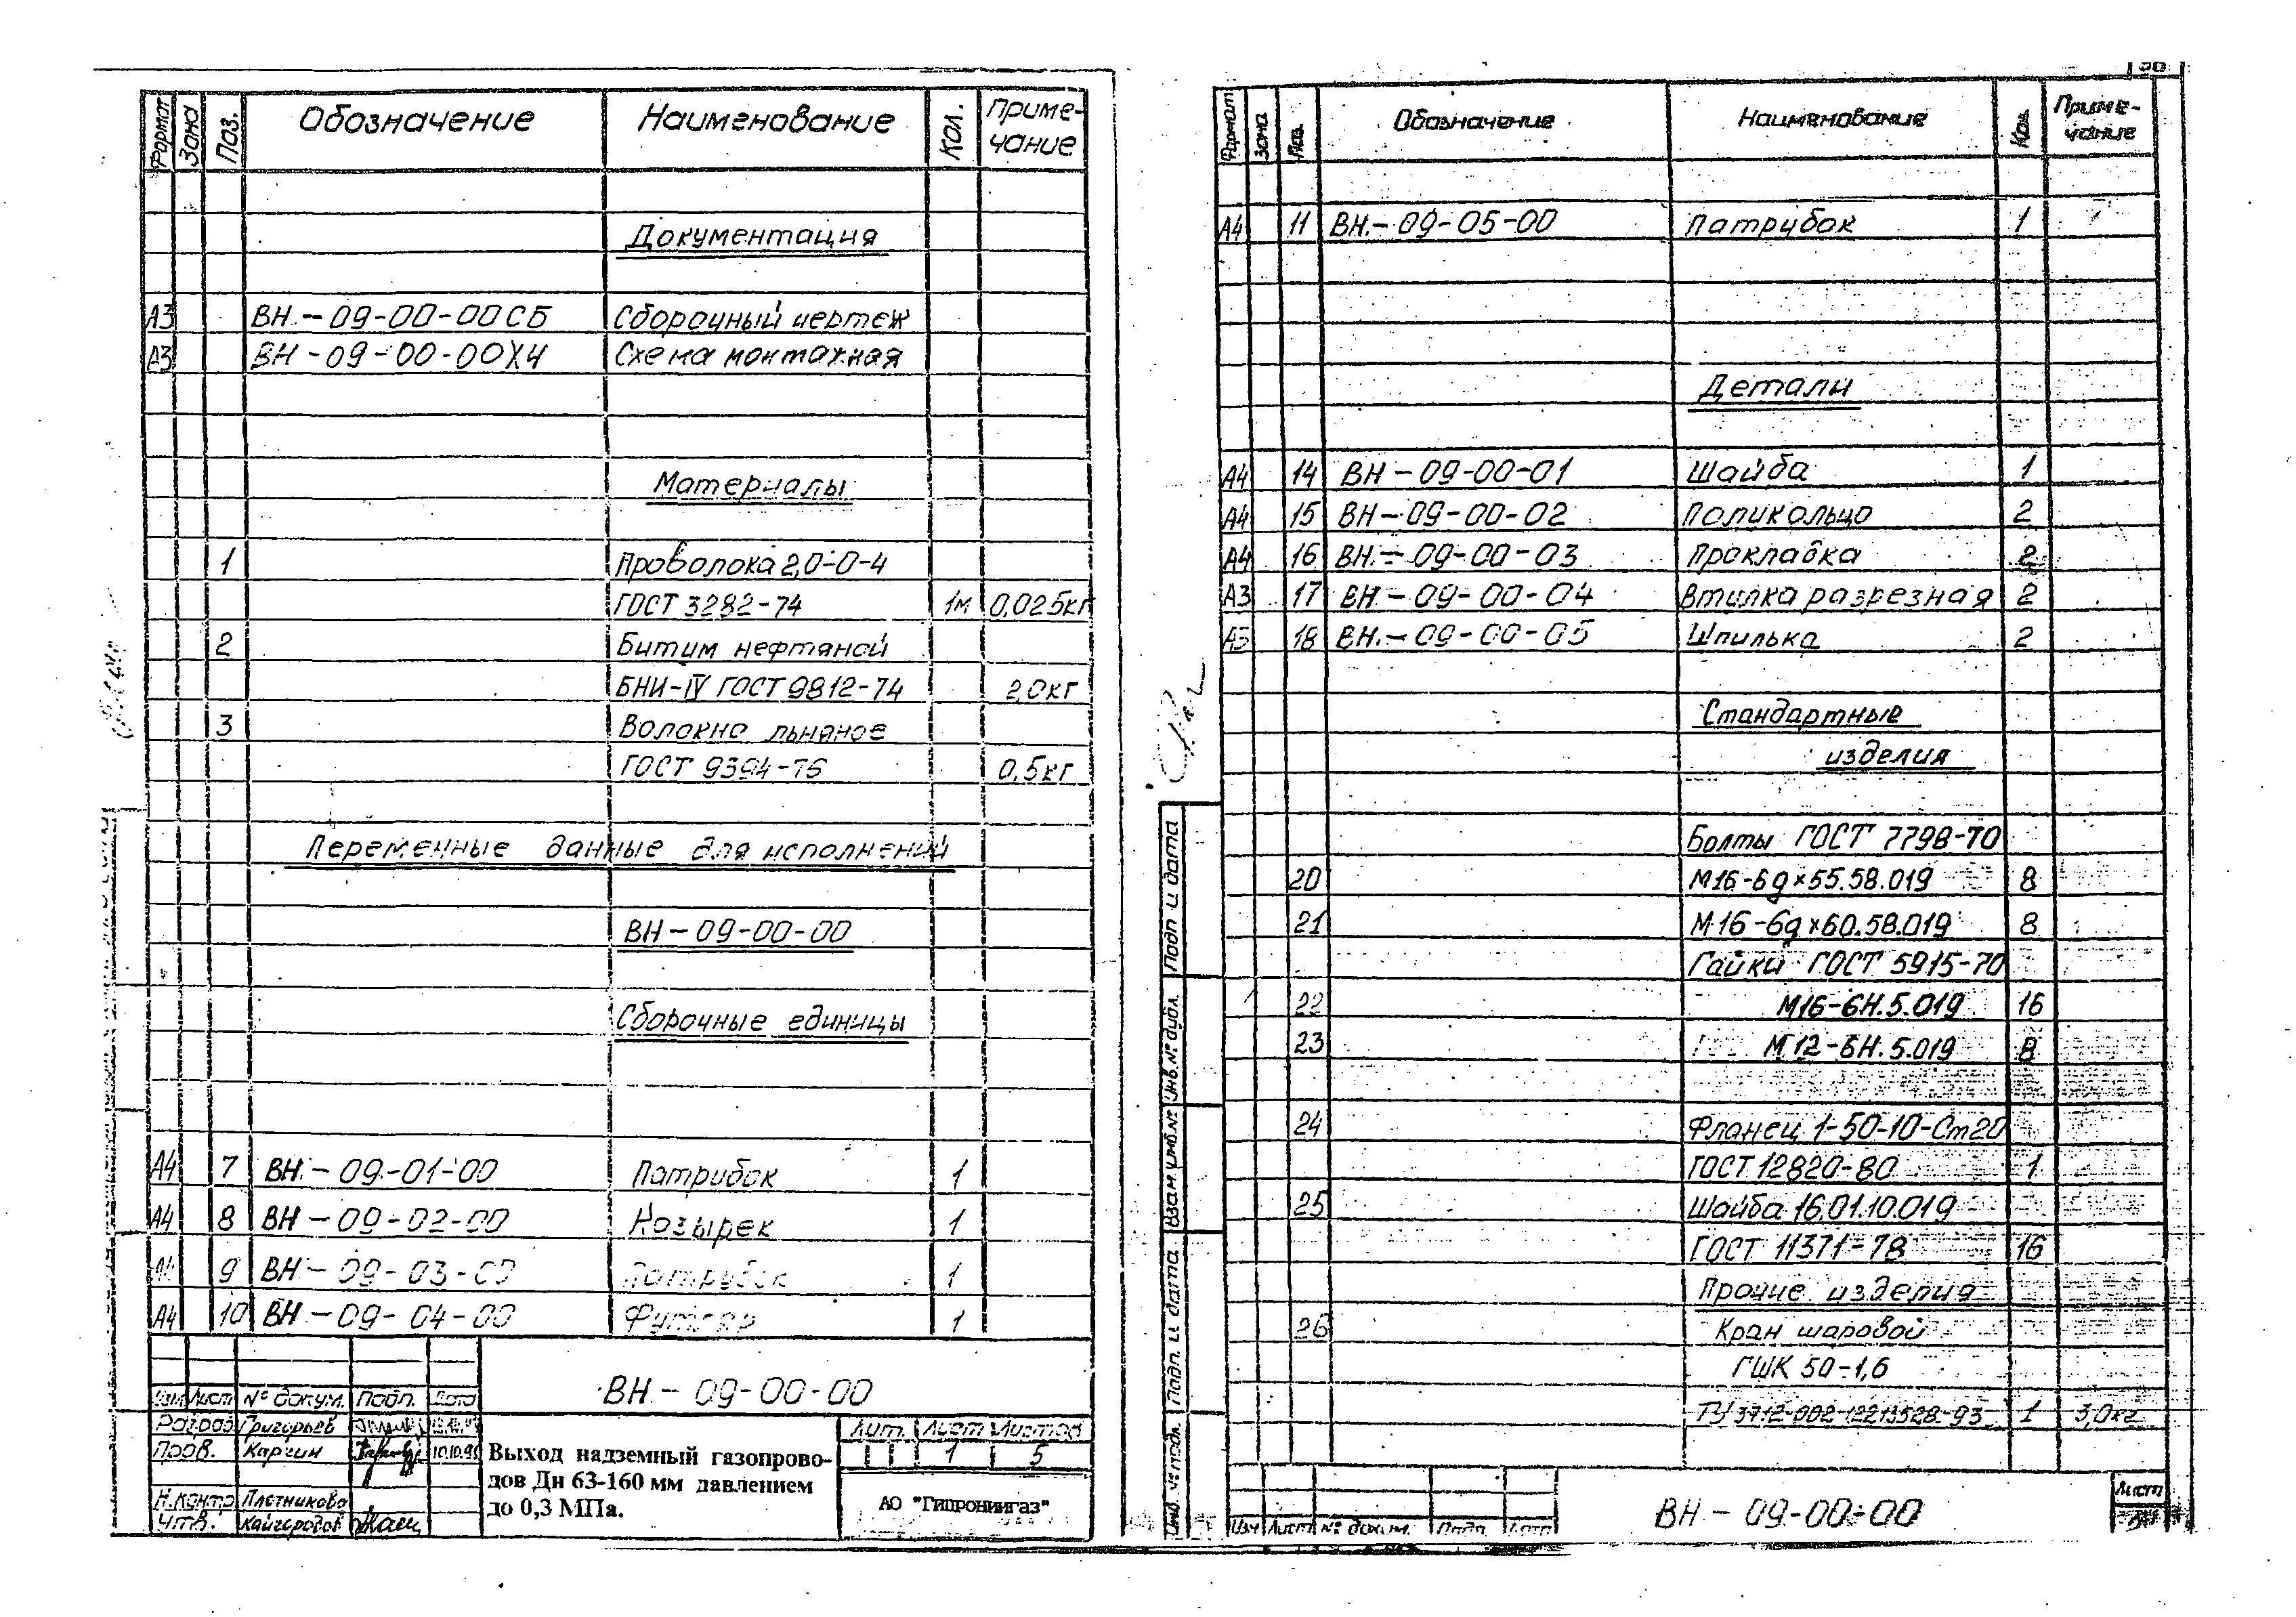 Формат Зона Поз. Обозначение Наименование Кол. Приме-
чание
Документация
А3 ВН-09-00-00СБ Сборочный чертеж
А3 ВН-09-00-00Х4 Схема монтажная
Материалы
1 Проволока 2,0-0-4
ГОСТ 3282-74 1м 0,025кг
2 Битум нефтяной
БНИ-IV ГОСТ 9812-74 2,0кг
3 Волокно льняное
ГОСТ 9394-76 0,5кг
Переменные данные для исполнений
ВН-09-00-00
Сборочные единицы
А4 7 ВН-09-01-00 Патрубок 1
А4 8 ВН-09-02-00 Козырек 1
А4 9 ВН-09-03-00 Патрубок 1
А4 10 ВН-09-04-00 Футляр 1
ВН-09-00-00
Изм Лист № докум. Подп. Дата
Разраб Григорьев
Пров. Каргин 10.10.95
Н.контр Плотникова
Утв. Кайгородов
Выход надземный газопрово-
дов Дн 63-160 мм давлением
до 0,3 МПа.
Лит. Лист Листов
1 5
АО "Гипрониигаз"
Формат Зона Поз. Обозначение Наименование Кол. Приме-
чание
А4 11 ВН-09-05-00 Патрубок 1
Детали
А4 14 ВН-09-00-01 Шайба 1
А4 15 ВН-09-00-02 Полукольцо 2
А4 16 ВН-09-00-03 Прокладка 2
А3 17 ВН-09-00-04 Втулка разрезная 2
18 ВН-09-00-05 Шпилька 2
Стандартные
изделия
Болты ГОСТ 7798-70
20 М16-6g×55.58.019 8
21 М16-6g×60.58.019 8
Гайки ГОСТ 5915-70
22 М16-6Н.5.019 16
23 М12-6Н.5.019 8
24 Фланец 1-50-10-Ст20
ГОСТ 12820-80 1
25 Шайба 16.01.10.019
ГОСТ 11371-78 16
Прочие изделия
26 Кран шаровой
ГШК 50-1,6
ТУ 3712-002-12213528-93 1 3,0кг
Подп и дата
Инв. № дубл.
Взам. инв. №
Подп. и дата
Инв. № подл.
Изм Лист № докум. Подп. Дата
ВН-09-00-00
Лист